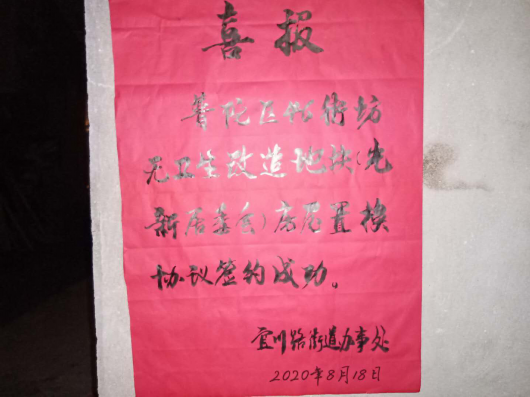 喜报
普陀区街坊
无卫生改造地块(光
新居委会)房屋置换
协议签约成功。
宜川路街道办事处
2020年8月18日